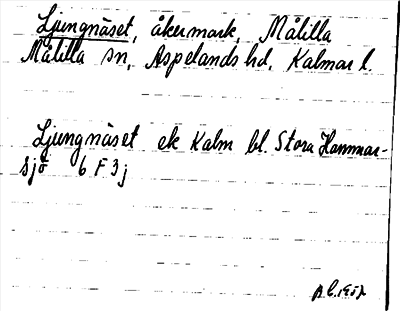 Ljungnäset, åkermark, Målilla
Målilla sn, Aspelands hd, Kalmar l.
Ljungnäset ek Kalm bl. Stora Hammar-
sjö 6 F 3 j